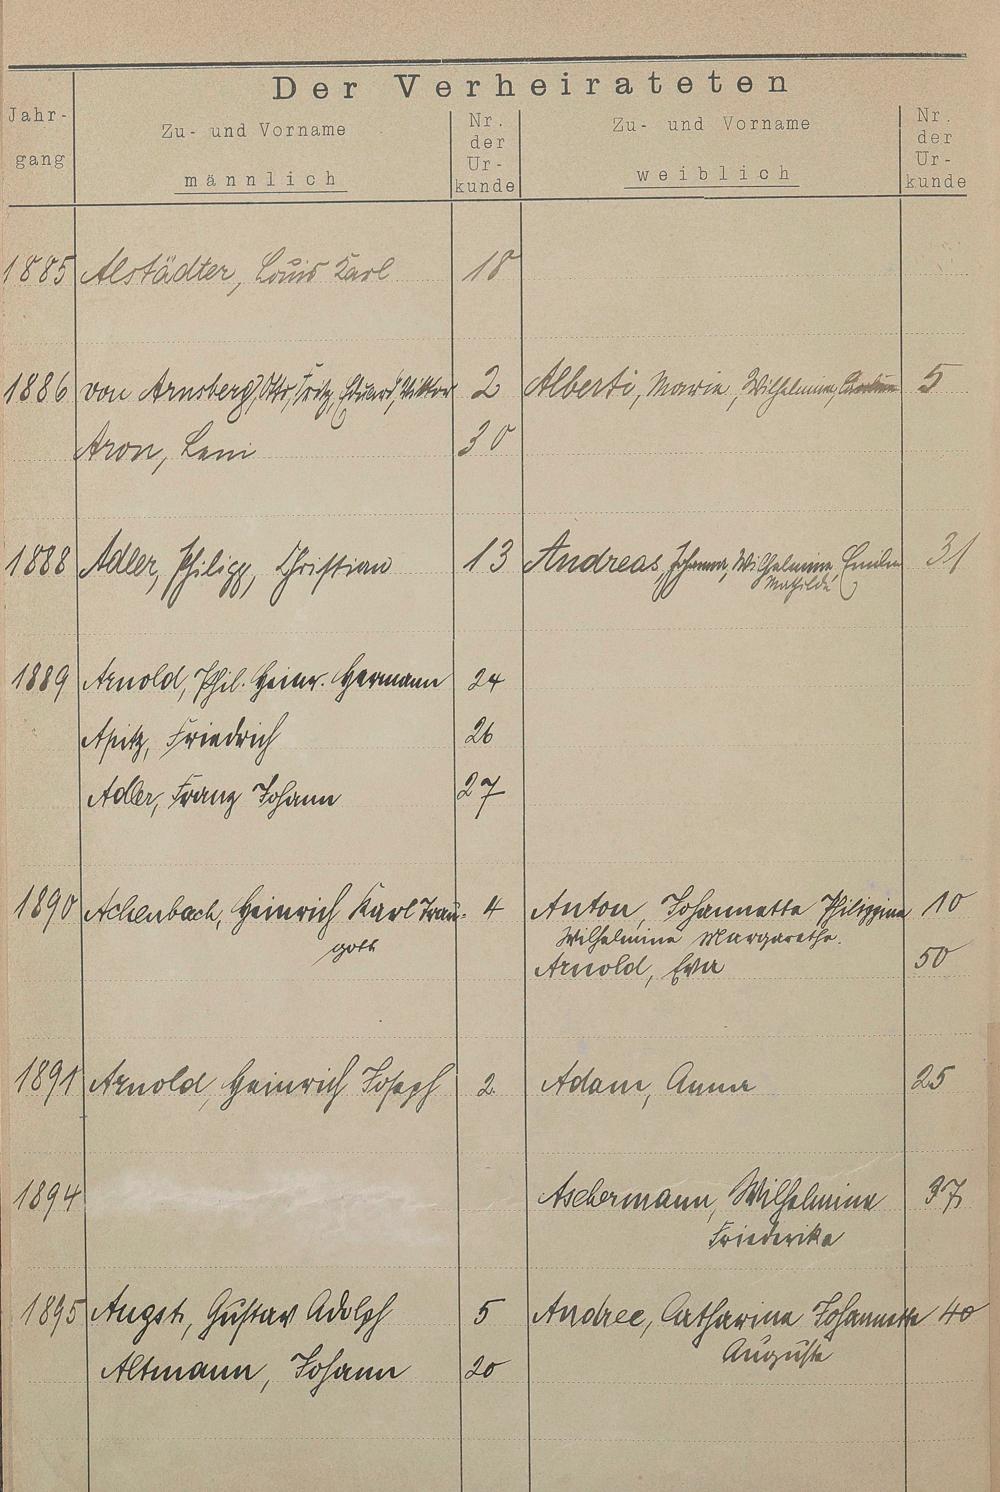 Der Verheirateten
Jahr-
gang
Zu- und Vorname
männlich
Nr.
der
Ur-
kunde
Zu- und Vorname
weiblich
Nr.
der
Ur-
kunde
1885 Alstädter, Louis Karl 18
1886 von Arnsberg, Otto, Fritz, Eduard, Viktor 2 Alberti, Marie, Wilhelmine, 5
Aron, Leni 30
1888 Adler, Philipp, Christian 13 Andreas, Johanna, Wilhelmine Emilie 31
Mathilde
1889 Arnold, Phil. Heinr. Hermann 24
Apitz, Friedrich 26
Adler, Franz Johann 27
1890 Achenbach, Heinrich Karl Trau- 4 Anton, Johannette Philippine 10
gott Wilhelmine Margarethe.
Arnold, Eva 50
1891 Arnold, Heinrich Joseph 2 Adam, Anna 25
1894 Aschermann, Wilhelmine 37
Friederike
1895 Angst, Gustav Adolph 5 Andree, Catharina Johannette 40
Auguste
Altmann, Johann 20